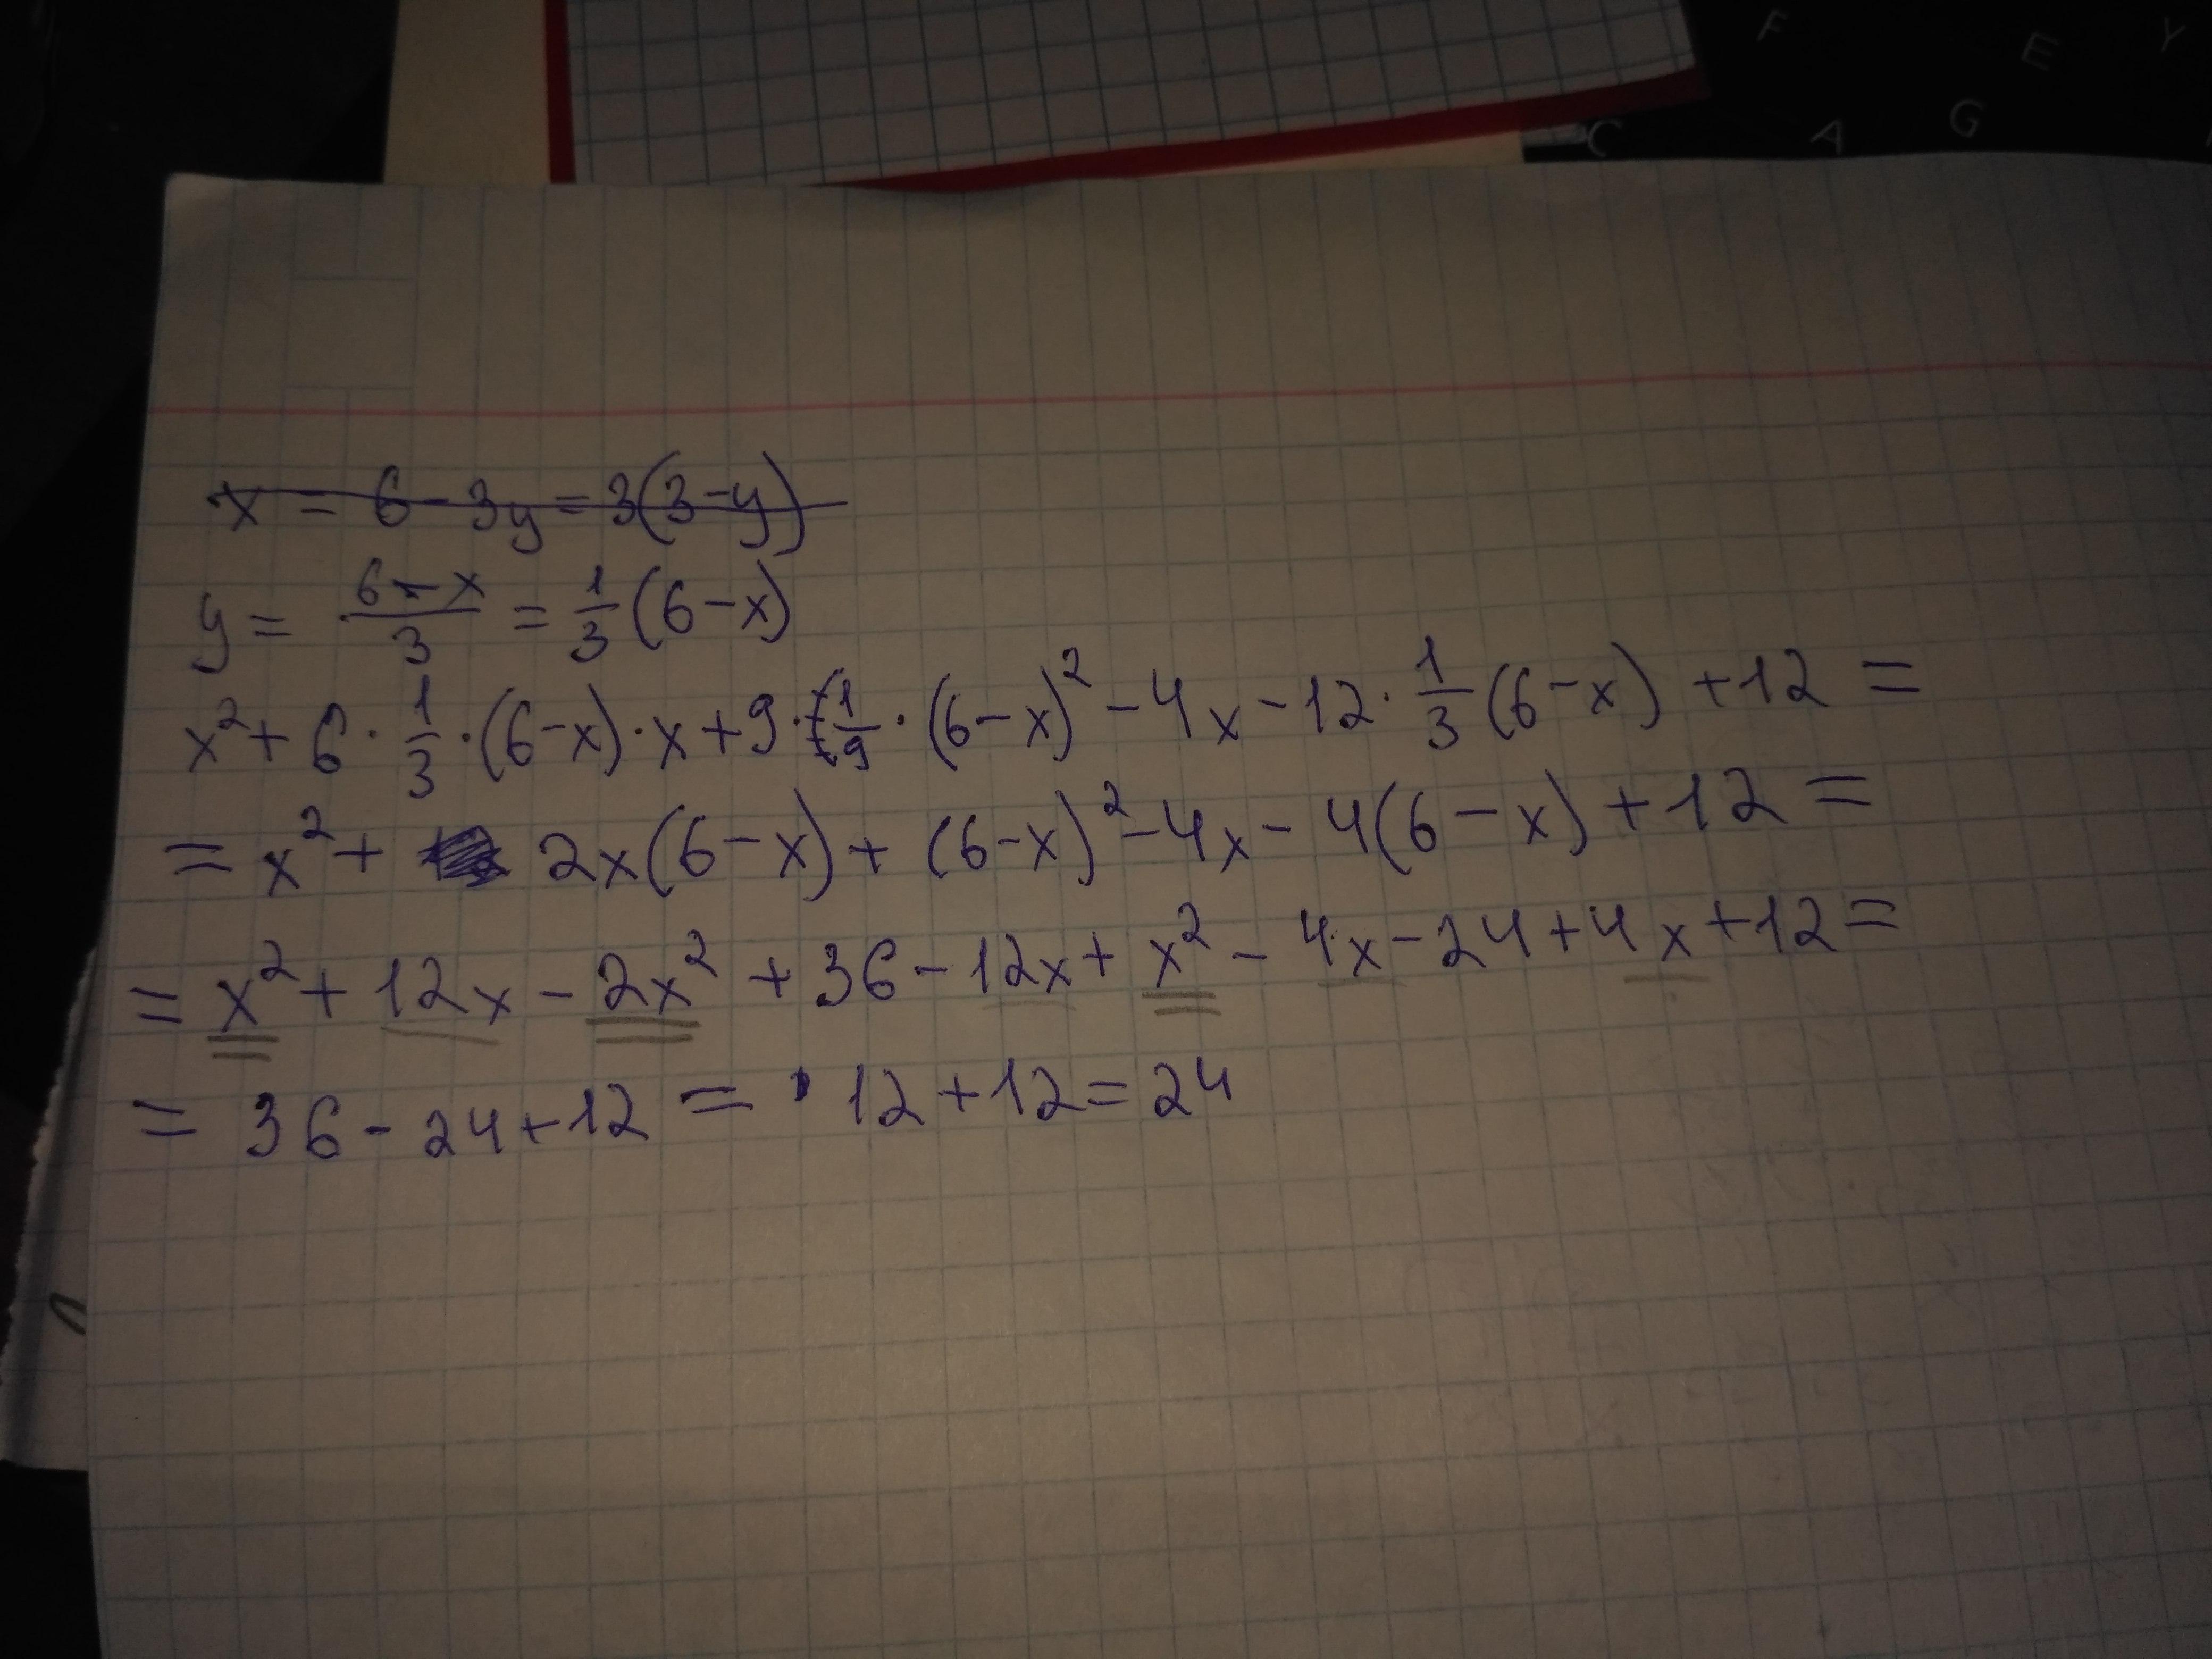 F E Y
C A G
x = 6 - 3y = 3(3-y)
y = \frac{6-x}{3} = \frac{1}{3}(6-x)
x² + 6 · \frac{1}{3} · (6-x) · x + 9 · \frac{1}{9} · (6-x)² - 4x - 12 · \frac{1}{3}(6-x) + 12 =
= x² + 2x(6-x) + (6-x)² - 4x - 4(6-x) + 12 =
= x² + 12x - 2x² + 36 - 12x + x² - 4x - 24 + 4x + 12 =
= 36 - 24 + 12 = 12 + 12 = 24